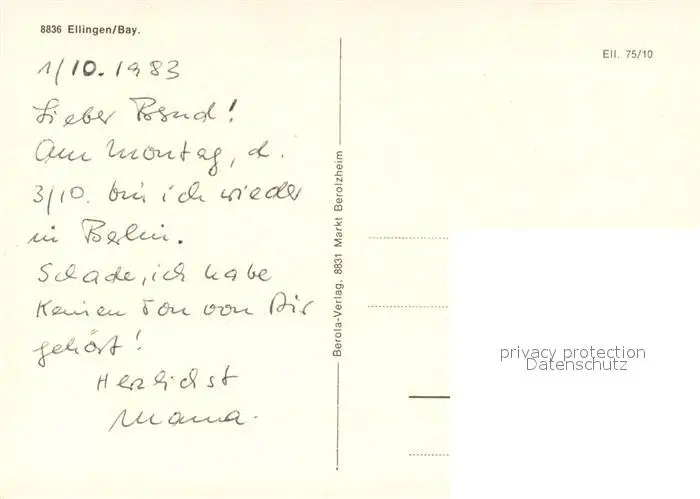 8836 Ellingen/Bay.
Ell. 75/10
1/10. 1983
Lieber Bernd!
Am Montag, d.
3/10. bin ich wieder
in Berlin.
Schade, ich habe
keinen Ton von Dir
gehört!
Herzlichst
Mama.
Berola-Verlag, 8831 Markt Berolzheim
privacy protection
Datenschutz